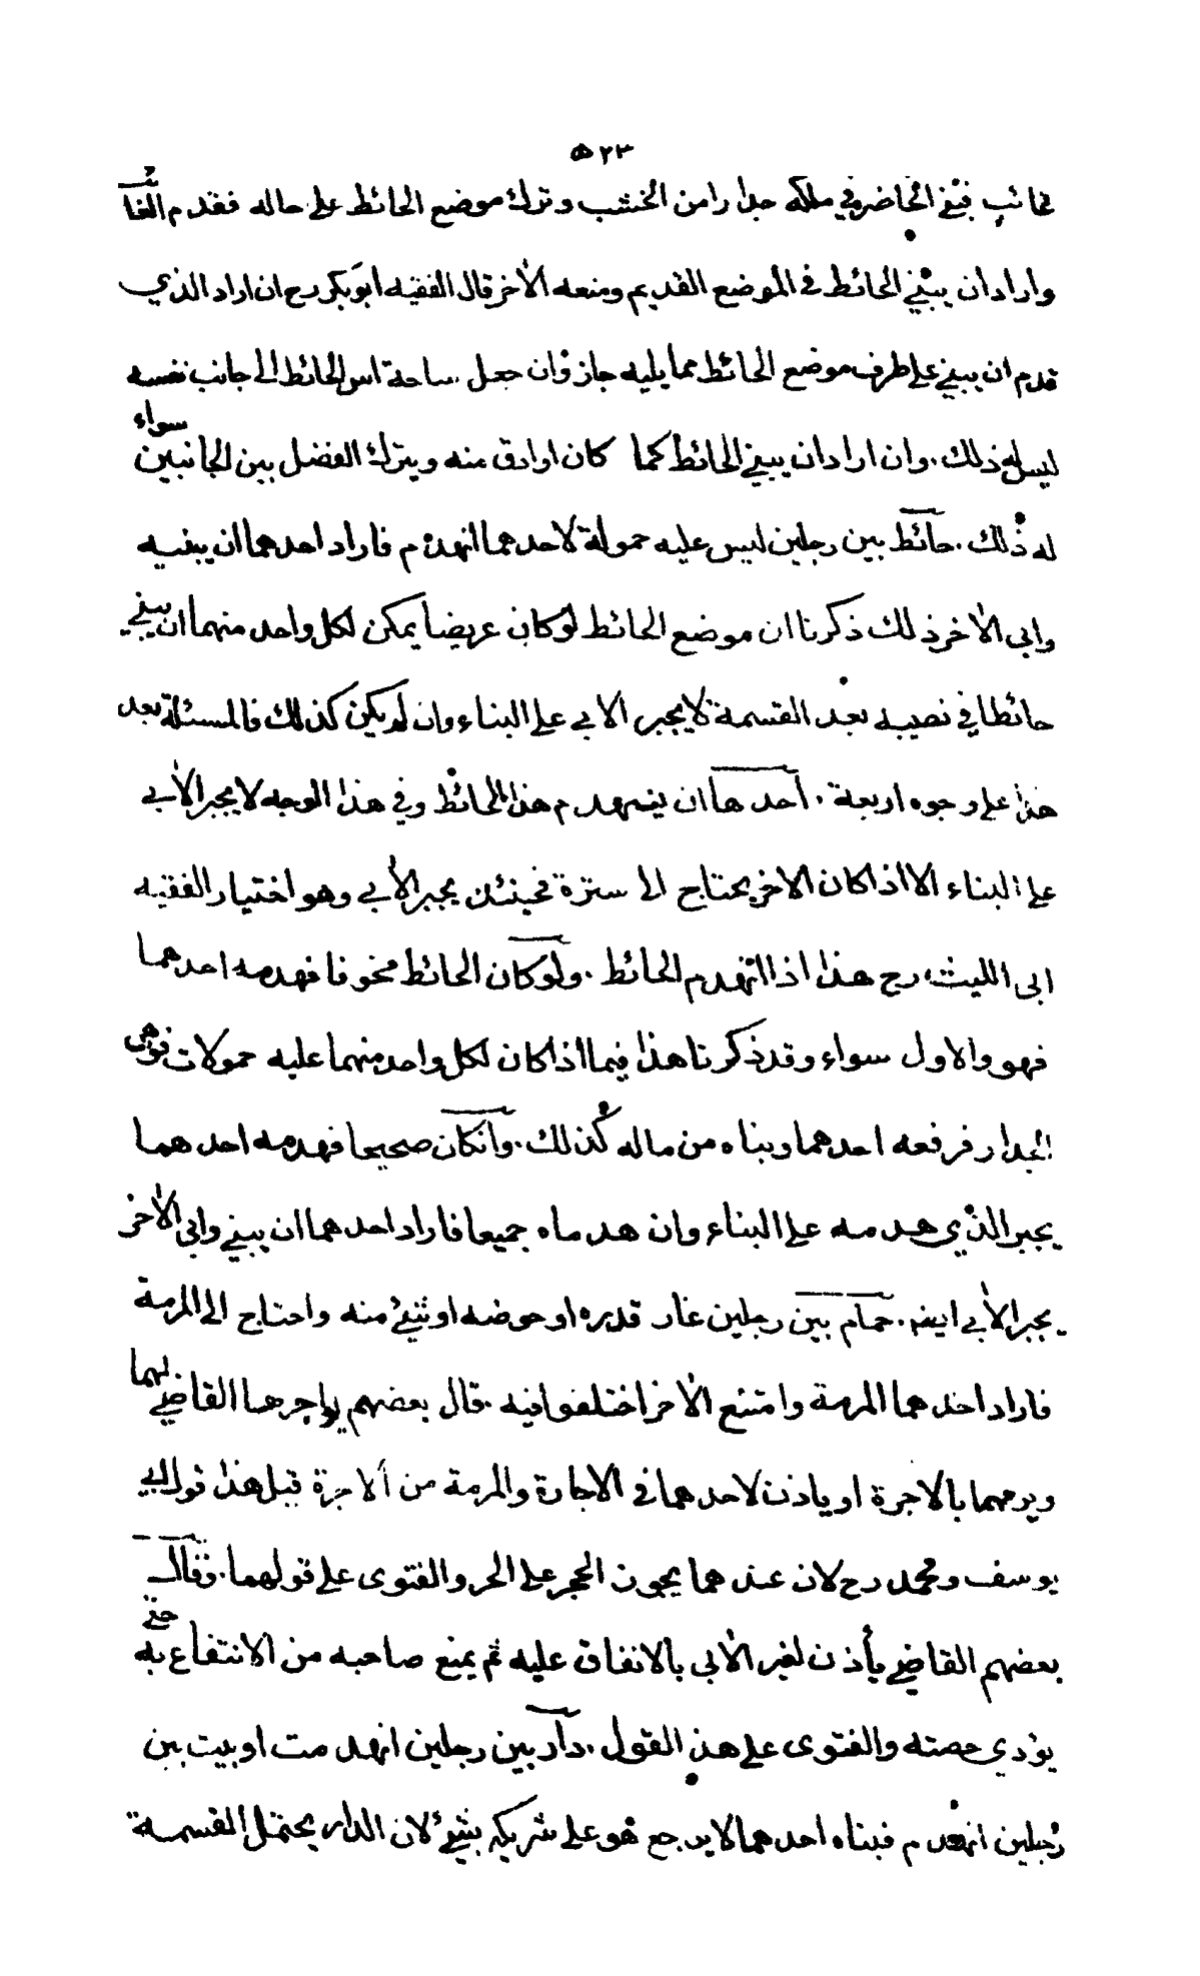 ٥٢٣
غائب فبنى الحاضر في ملكه جدارا من الخشب وترك موضع الحائط على حاله فقدم الغائب
واراد ان يبني الحائط في الموضع القديم ومنعه الاخر قال الفقيه ابو بكر رح ان اراد الذي
قدم ان يبني على طرف موضع الحائط مما يليه جاز وان جعل ساحة اس الحائط الى جانب نفسه
ليس له ذلك . وان اراد ان يبني الحائط كما كان او ادق منه ويترك الفضل بين الجانبين سواء
له ذلك . حائط بين رجلين ليس عليه حمولة لاحدهما انهدم فاراد احدهما ان يبنيه
وابى الاخر ذلك ذكرنا ان موضع الحائط لو كان عريضا يمكن لكل واحد منهما ان يبني
حائطا في نصيبه بعد القسمة لا يجبر الابي على البناء وان لم يكن كذلك فالمسئلة بعد
هذا على وجوه اربعة . احدها ان ينهدم هذا الحائط وفي هذا الوجه لا يجبر الابي
على البناء الا اذا كان الاخر يحتاج الى سترة فحينئذ يجبر الابي وهو اختيار الفقيه
ابى الليث رح هذا اذا انهدم الحائط . ولو كان الحائط مخوفا فهدمه احدهما
فهو والاول سواء وقد ذكرنا هذا فيما اذا كان لكل واحد منهما عليه حمولات فوهى
الجدار فرفعه احدهما وبناه من ماله كذلك . وانكان صحيحا فهدمه احدهما
يجبر الذي هدمه على البناء وان هدماه جميعا فاراد احدهما ان يبني وابى الاخر
يجبر الابي ايضا . حمام بين رجلين غار قدره او حوضه او شيئ منه واحتاج الى المرمة
فاراد احدهما المرمة وامتنع الاخر اختلفوا فيه . قال بعضهم يواجرها القاضي لهما
ويرمهما بالاجرة او ياذن لاحدهما في الاجارة والمرمة من الاجرة قيل هذا قول ابي
يوسف ومحمد رح لان عندهما يجوز الحجر على الحر والفتوى على قولهما . وقال
بعضهم القاضي يأذن لغير الابي بالانفاق عليه ثم يمنع صاحبه من الانتفاع به حتى
يؤدي حصته والفتوى على هذا القول . دار بين رجلين انهدمت او بيت بين
رجلين انهدم فبناه احدهما لا يرجع هو على شريكه بشيئ لان الدار يحتمل القسمة